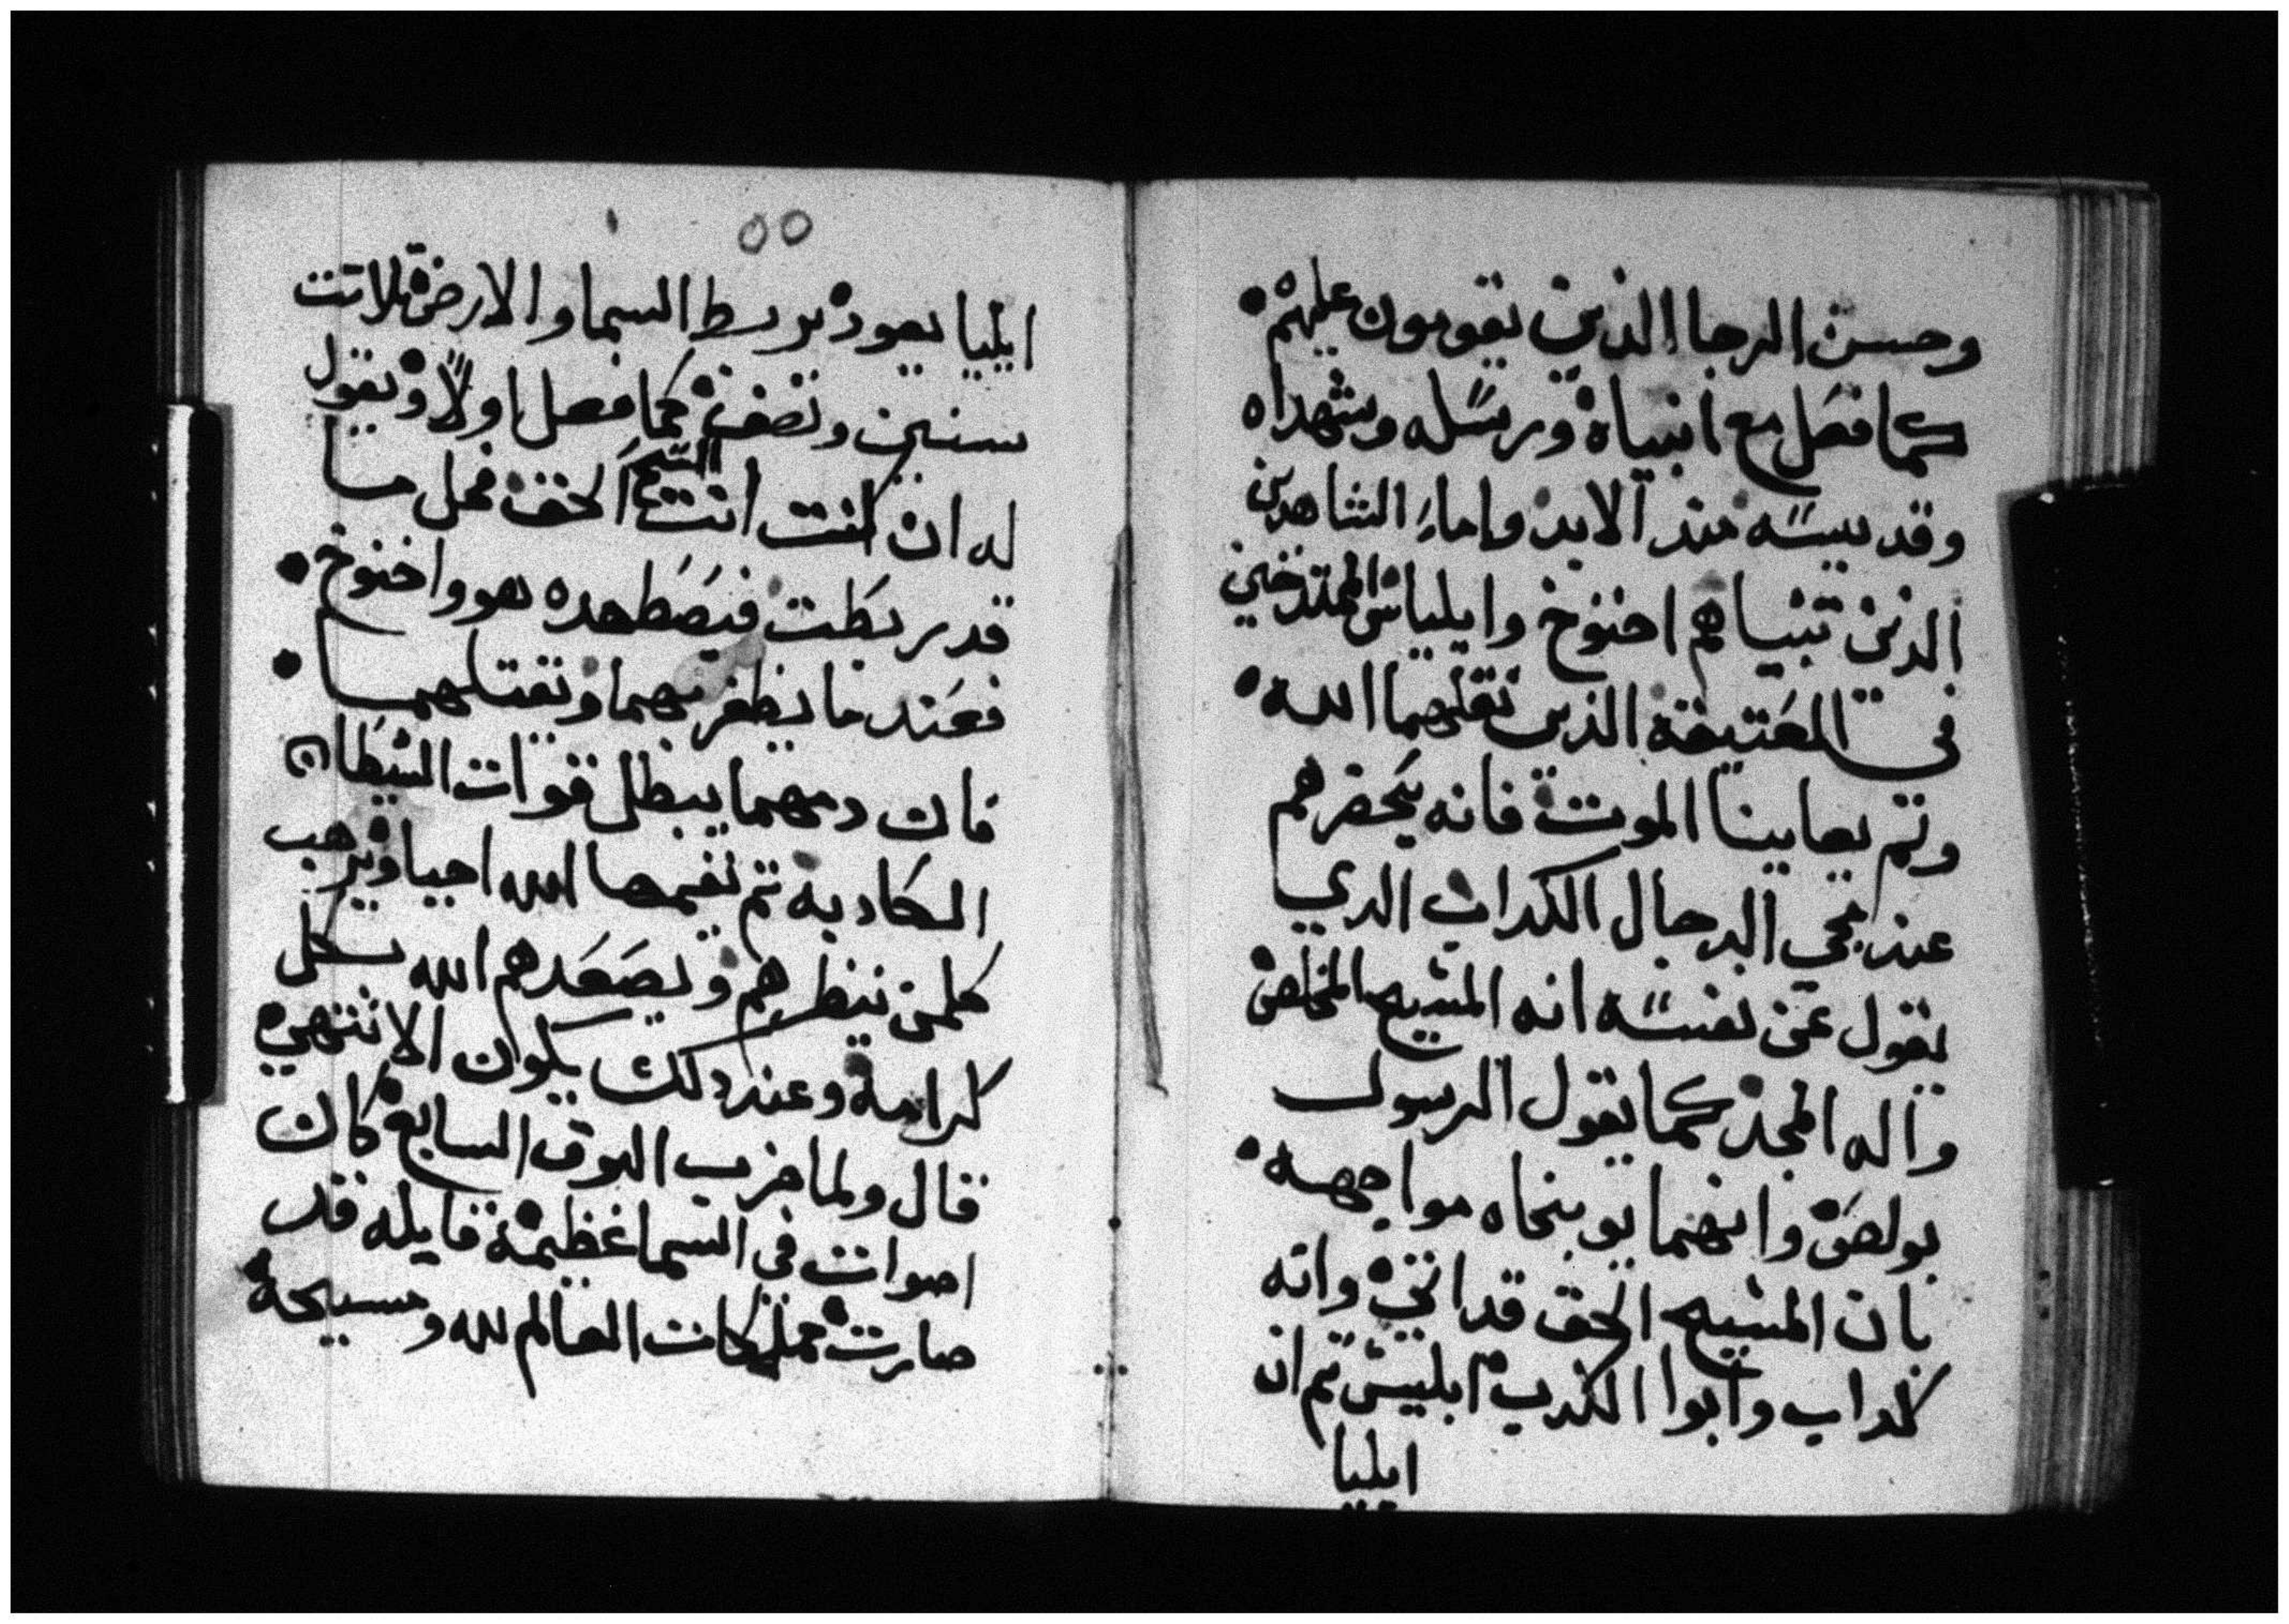 وحسن الرجا الذين يقومون عليهم
كما فعل مع انبياه ورسله وشهداه
وقديسيه منذ الابد واما الشاهدين
الذين تنبياهم اخنوخ وايلياس
في العتيقة الذين نقلهما الله
ولم يعاينا الموت فانه يحضرهم
عند مجي الدجال الكداب الدي
يقول عن نفسه انه المسيح المخلص
واله المجد كما يقول الرسول
بولص وانهما يوبخاه مواجهه
بان المسيح الحق قد اتي وانه
كداب وابوا الكدب ابليس تم ان
ايليا
٥٥
ايليا يعود يربط السما والارض تلاتت
سنين ونصف كما فعل اولاً ويقول
له ان كنت انت المسيح الحق فحل ما
قد ربطت فيضطهده هو واخنوخ
فعند ما يظفر بهما ويقتلهما
فان دمهما يبطل قوات الشيطان
الكادبه تم يقيمهما الله احيا ويرهب
كلمن ينظرهم ويصعدهم الله بكل
كرامه وعند دلك يكون الانتهي
قال ولما ضرب البوق السابع كان
اصوات في السما عظيمة قايله قد
صارت مملكات العالم لله ومسيحه